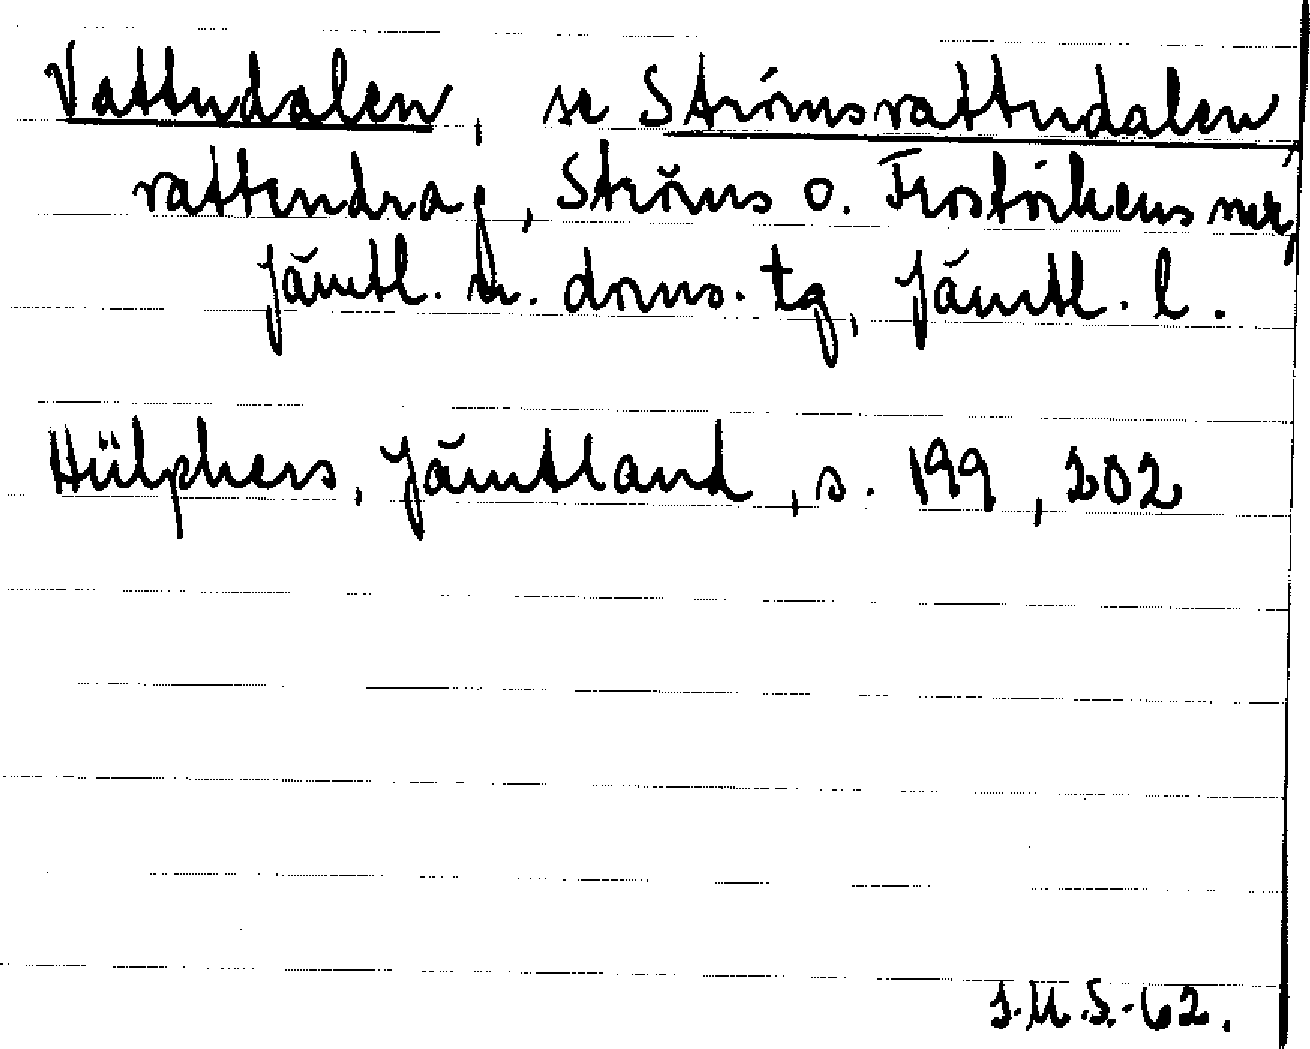 Vattudalen, se Strömsvattudalen,
vattendrag, Ströms o. Frostvikens snr,
Jämtl. n. doms. tg, Jämtl. l.
Hülphers, Jämtland, s. 199, 202
I.M.S.-62.